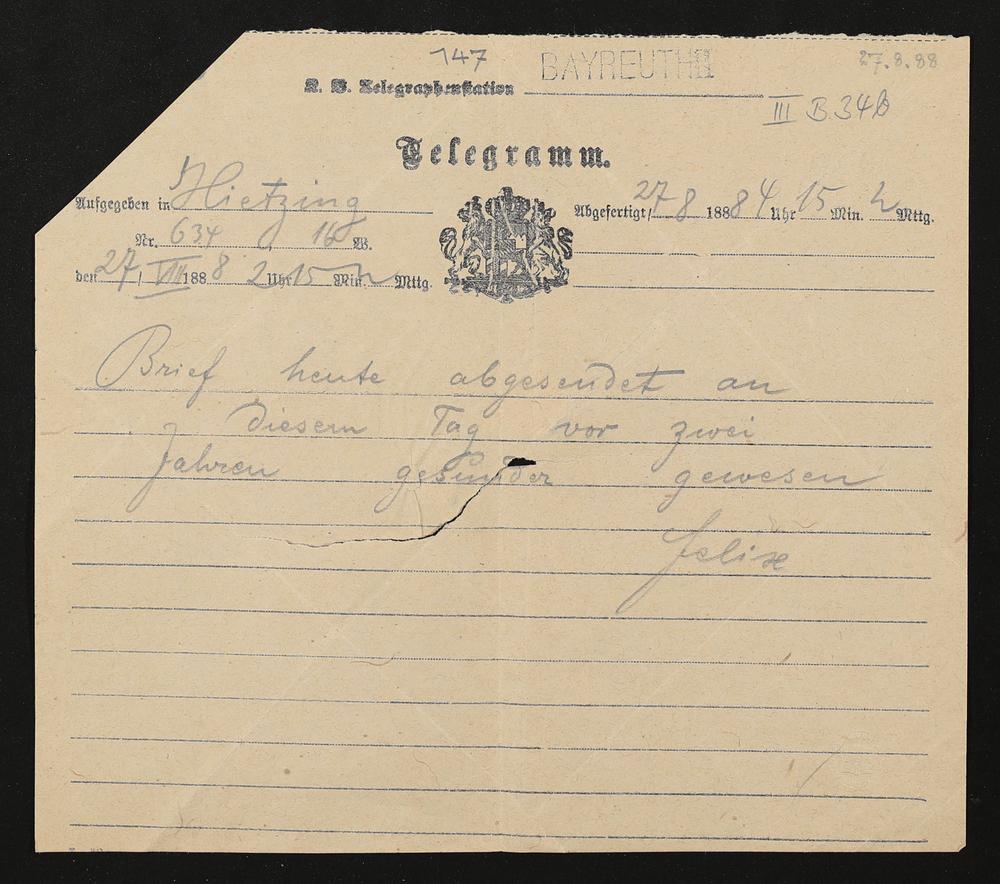 147 BAYREUTH II 27.8.88
K. B. Telegraphenstation
III B 34b
Telegramm.
Aufgegeben in Hietzing
Nr. 634 16 W.
den 27/VIII 1888 2 Uhr 15 Min. n Mttg.
Abgefertigt 27/8 1888 4 Uhr 15 Min. n Mttg.
Brief heute abgesendet an
diesem Tag vor zwei
Jahren gesünder gewesen
Felix